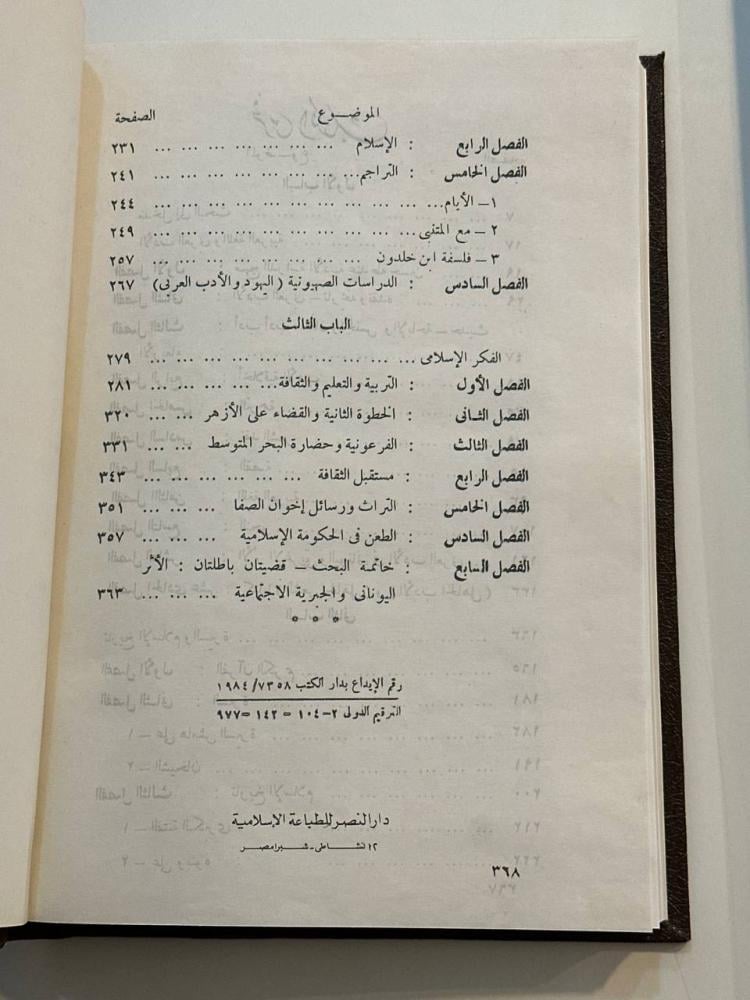 الموضوع الصفحة
الفصل الرابع : الإسلام ... ... ... ... ... ... ... ٢٣١
الفصل الخامس : التراجم... ... ... ... ... ... ... ٢٤١
١ – الأيام... ... ... ... ... ... ... ... ... ٢٤٤
٢ – مع المتنبى ... ... ... ... ... ... ... ... ٢٤٩
٣ – فلسفة ابن خلدون ... ... ... ... ... ... ٢٥٧
الفصل السادس : الدراسات الصهيونية ( اليهود والأدب العربى ) ٢٦٧
الباب الثالث
الفكر الإسلامى ... ... ... ... ... ... ... ... ٢٧٩
الفصل الأول : التربية والتعليم والثقافة... ... ... ... ٢٨١
الفصل الثانى : الخطوة الثانية والقضاء على الأزهر ... ... ٣٢٠
الفصل الثالث : الفرعونية وحضارة البحر المتوسط ... ... ٣٣١
الفصل الرابع : مستقبل الثقافة ... ... ... ... ... ٣٤٣
الفصل الخامس : التراث ورسائل إخوان الصفا ... ... ... ٣٥١
الفصل السادس : الطعن فى الحكومة الإسلامية ... ... ... ٣٥٧
الفصل السابع : خاتمة البحث – قضيتان باطلتان : الأثر
اليونانى والجبرية الاجتماعية ... ... ... ٣٦٣
* * *
رقم الإيداع بدار الكتب ٧٣٥٨/ ١٩٨٤
الترقيم الدولى ٢–١٠٤ – ١٤٢ –٩٧٧
دار النصر للطباعة الإسلامية
١٢ نشاطى – شبرا مصر
٣٦٨